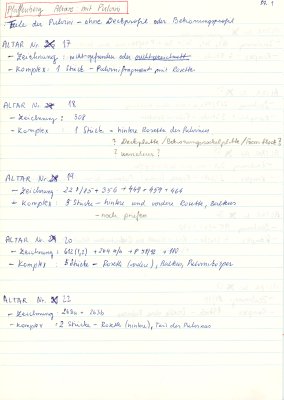 Pfaffenberg Altäre mit Pulvini
Bl. 1
Teile der Pulvini - ohne Deckprofil oder Bekrönungsprofil
ALTAR Nr. 17
- Zeichnung: nicht gefunden oder
- Komplex: 1 Stück - Pulvinifragment mit Rosette
ALTAR Nr. 18
- Zeichnung: 308
- Komplex: 1 Stück - hintere Rosette des Pulvinus
ALTAR Nr. 19
- Zeichnung
- Komplex: Stücke - hintere und vordere Rosette, Balteus
- noch prüfen
ALTAR Nr. 20
- Zeichnung:
- Komplex: Stücke - Rosette (vordere), Balteus, Pulvinikörper
ALTAR Nr. 22
- Zeichnung: 263a - 263b
- Komplex: 2 Stücke - Rosette (hintere), Teil des Pulvinus